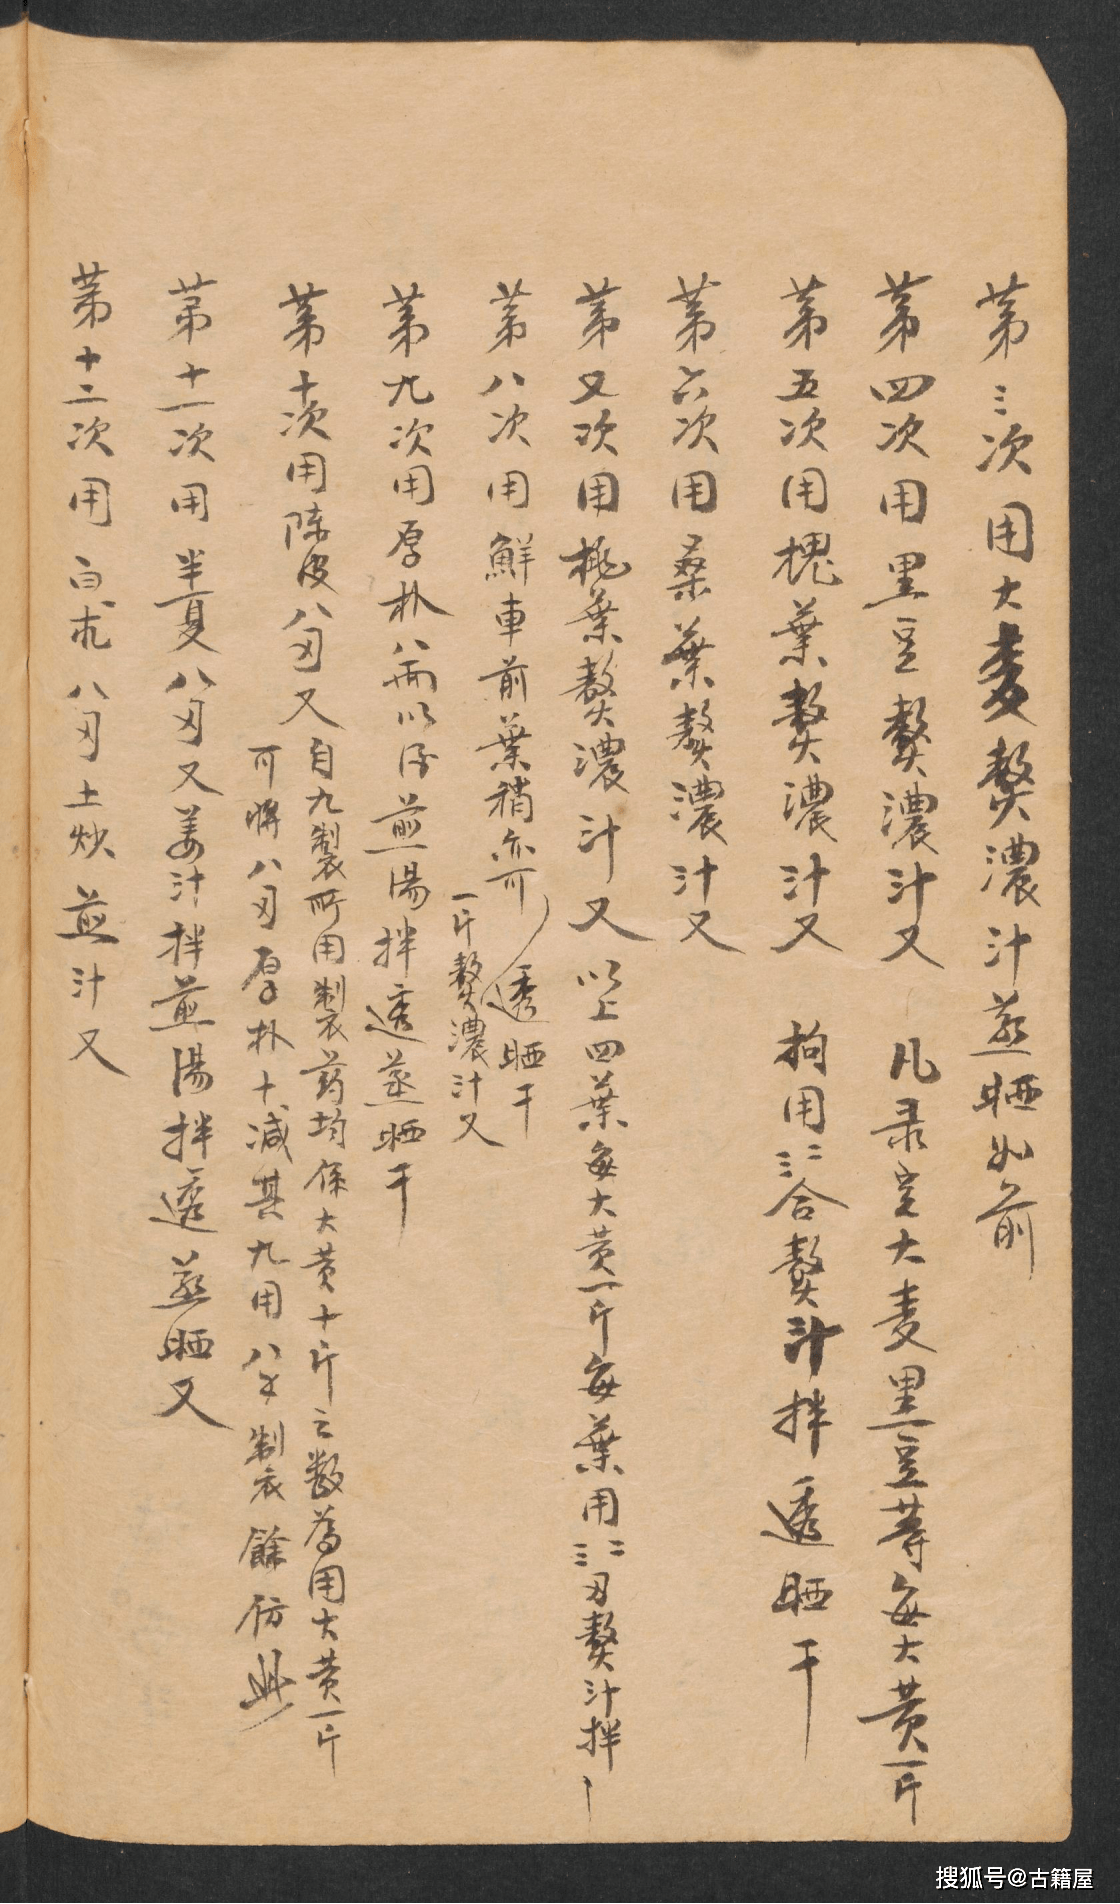 第三次用大麦熬濃汁蒸晒如前
第四次用黑豆熬濃汁又 凡录定大麦黑豆等每大黄一斤
第五次用槐葉熬濃汁又 拘用三二合熬汁拌透晒干
第六次用桑葉熬濃汁又
第又次用桃葉熬濃汁又 以上四葉每大黄一斤每葉用三二刄熬汁拌
第八次用鮮車前葉稍亦可 透晒干
一斤熬濃汁又
第九次用厚朴八両以煎湯拌透蒸晒干
第十次用陈皮八刄又 自九製所用製药均係大黄十斤之數為用大黄一斤
可將八刄厚朴十減其九用八才製衣餘仿此
第十一次用半夏八刄又姜汁拌煎湯拌透蒸晒又
第十二次用白朮八刄土炒煎汁又
搜狐号@古籍屋